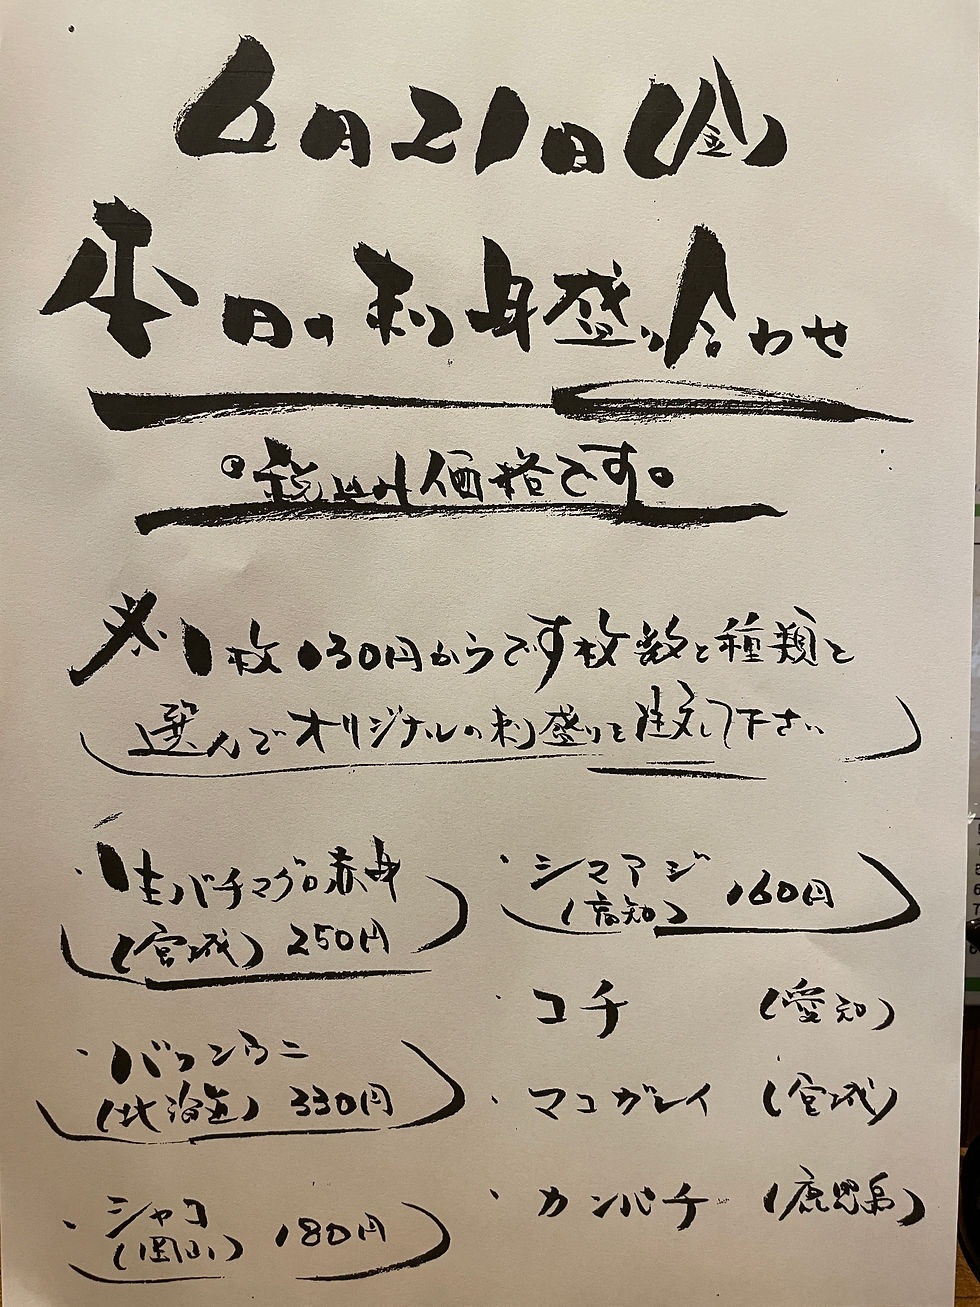 6月21日(金)
本日の刺身盛り合わせ
。税込み価格です。
※1枚130円からです枚数と種類を
選んでオリジナルの刺盛りを注文して下さい
・生バチマグロ赤身
(宮城) 250円
・バフンウニ
(北海道) 330円
・シャコ
(岡山) 180円
・シマアジ
(高知) 160円
・コチ (愛知)
・マコガレイ (宮城)
・カンパチ (鹿児島)